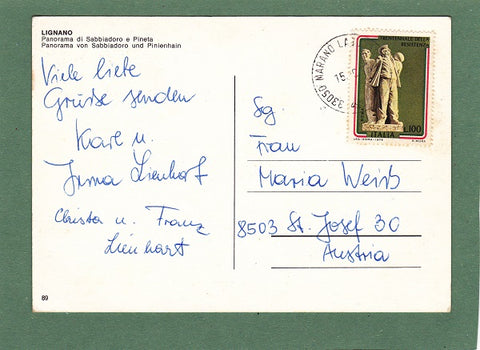 LIGNANO
Panorama di Sabbiadoro e Pineta
Panorama von Sabbiadoro und Pinienhain
Viele liebe
Grüsse senden
Karl u.
Irma Lienhart
Christa u. Franz
Lienhart
89
33050 MARANO
15
TRENTENNALE DELLA
RESISTENZA
L.100
ITALIA
Sg.
Frau
Maria Weiß
8503 St. Josef 30
Austria